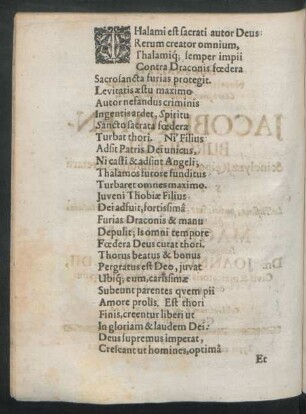 THalami est sacrati autor Deus
Rerum creator omnium,
Thalamiq́; semper impii
Contra Draconis fœdera
Sacrosancta furias protegit.
Levitaris æstu maximo
Autor nefandus criminis
Ingentis ardet, Spiritu
Sancto sacrata fœdera
Turbat thori. Ni Filius
Adsit Patris Dei unicus,
Ni casti & adsint Angeli,
Thalamos furore funditus
Turbaret omnes maximo.
Juveni Thobiæ Filius
Dei adfuit, fortissimâ
Furias Draconis & manu
Depulit, Is omni tempore
Fœdera Deus curat thori.
Thorus beatus & bonus
Pergratus est Deo, juvat
Ubiq́; eum, carissimæ
Subeunt parentes qvem pii
Amore prolis. Est thori
Finis, creentur liberi ut
In gloriam & laudem Dei.
Deus supremus imperat,
Crescant ut homines, optimâ
Et